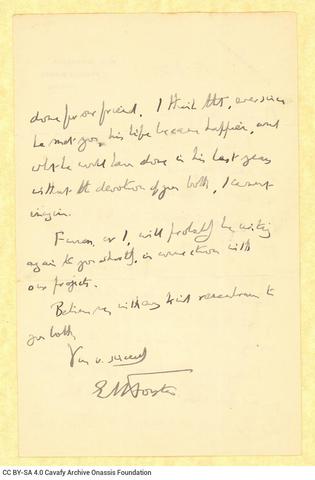 done for our friend. I think that, ever since
he met you, his life became happier, and
what he would have done in his last years
without the devotion of you both, I cannot
imagine.
Furness, or I, will probably be writing
again to you shortly, in connection with
our project.
Believe me with very kind remembrances to
you both,
Yours v. sincerely
EM Forster
CC BY-SA 4.0 Cavafy Archive Onassis Foundation